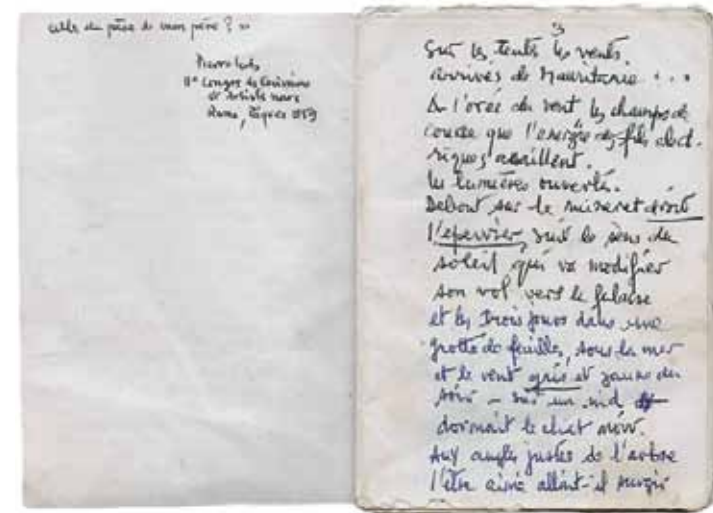 celle du père de mon père ? »
IIe Congrès des Écrivains
et Artistes noirs
Rome, Pâques 1959
3
Sur les tentes les vents.
arrivés de Mauritanie . . .
A l'orée du vent les champs de
coudre que l'énergie des fils élect-
riques assaillent.
les lumières ouvertes.
Debout sur le minaret droit
l'épervier, suit le sens du
soleil qui va modifier
son vol vers la falaise
et les trois jours dans une
grotte de feuilles, sous la mer
et le vent gris et jaune du
soir – sur un nid
dormait le chat noir.
Aux angles justes de l'arbre
l'être aimé allait-il surgir